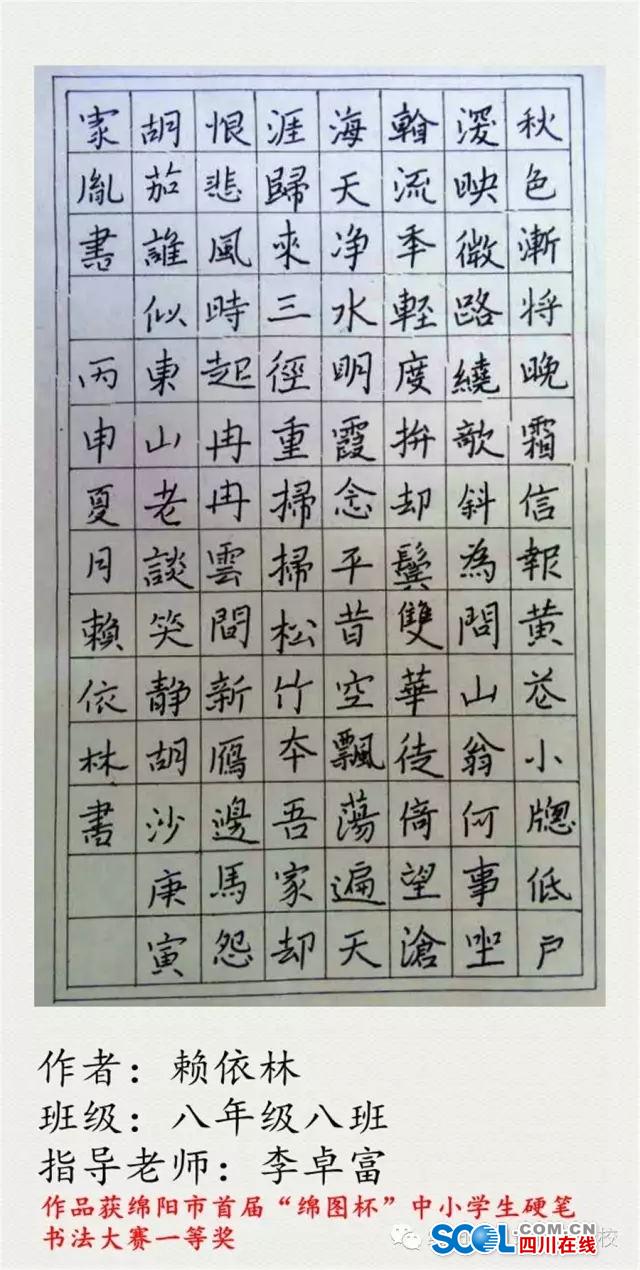 秋色漸將晚霜信報黄花小牕低户
深映微路繞敧斜為問山翁何事坐
看流年輕度拚却鬢雙華徙倚望滄
海天净水明霞念平昔空飄蕩遍天
涯歸來三徑重掃掃松竹本吾家却
恨悲風時起冉冉雲間新鴈邊馬怨
胡茄誰似東山老談笑静胡沙庚寅
家胤書 丙申夏月賴依林書
作者：赖依林
班级：八年级八班
指导老师：李卓富
作品获绵阳市首届“绵图杯”中小学生硬笔
书法大赛一等奖
校
SCOL.COM.CN
四川在线